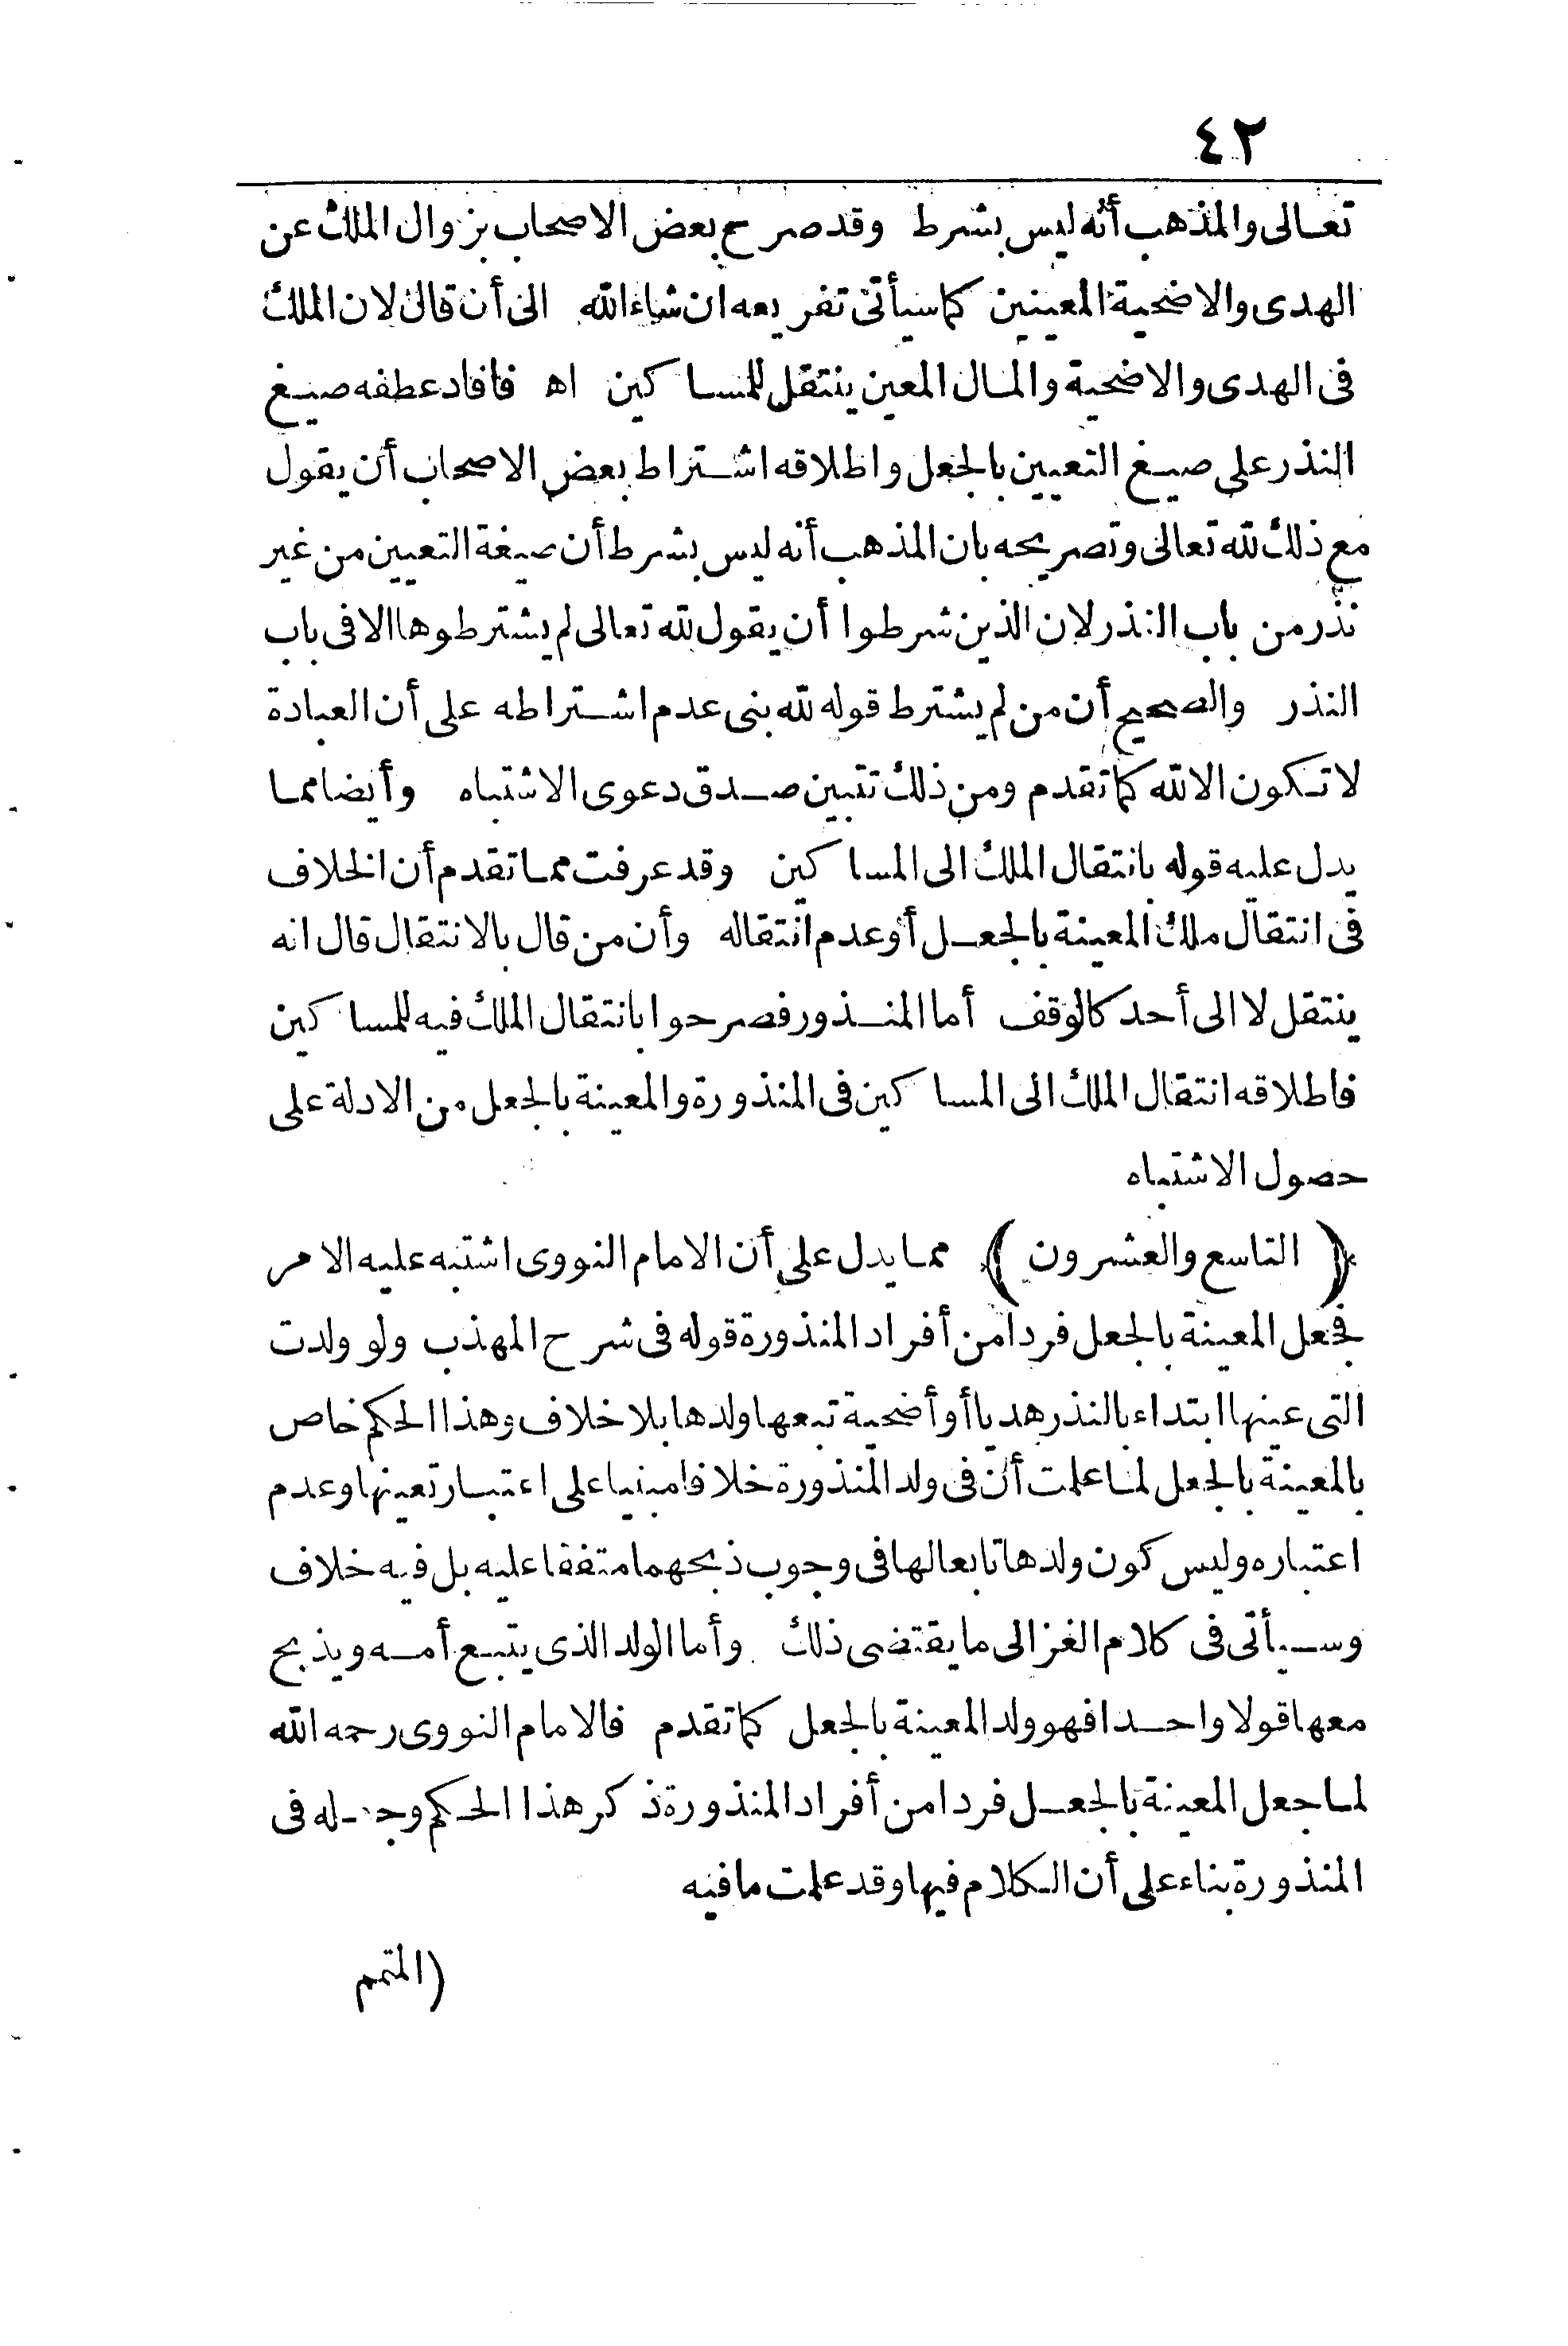 ٤٢
تعالى والمذهب أنه ليس بشرط وقد صرح بعض الاصحاب بزوال الملك عن
الهدى والاضحية المعينين كما سيأتى تفريعه ان شاء الله الى أن قال لان الملك
فى الهدى والاضحية والمال المعين ينتقل للمساكين اه فافاد عطفه صيغ
النذر على صيغ التعيين بالجعل واطلاقه اشتراط بعض الاصحاب أن يقول
مع ذلك لله تعالى وتصريحه بان المذهب أنه ليس بشرط أن صيغة التعيين من غير
نذر من باب النذر لان الذين شرطوا أن يقول لله تعالى لم يشترطوها الا فى باب
النذر والصحيح أن من لم يشترط قوله لله بنى عدم اشتراطه على أن العبادة
لا تكون الا لله كما تقدم ومن ذلك تتبين صدق دعوى الاشتباه وأيضا مما
يدل عليه قوله بانتقال الملك الى المساكين وقد عرفت مما تقدم أن الخلاف
فى انتقال ملك المعينة بالجعل أو عدم انتقاله وأن من قال بالانتقال قال انه
ينتقل لا الى أحد كالوقف أما المنذور فصرحوا بانتقال الملك فيه للمساكين
فاطلاقه انتقال الملك الى المساكين فى المنذورة والمعينة بالجعل من الادلة على
حصول الاشتباه
﴿ التاسع والعشرون ﴾ مما يدل على أن الامام النووى اشتبه عليه الامر
فجعل المعينة بالجعل فردا من أفراد المنذورة قوله فى شرح المهذب ولو ولدت
التى عينها ابتداء بالنذر هديا أو أضحية تبعها ولدها بلا خلاف وهذا الحكم خاص
بالمعينة بالجعل لما علمت أن فى ولد المنذورة خلافا مبنيا على اعتبار تعينها وعدم
اعتباره وليس كون ولدها تابعا لها فى وجوب ذبحهما متفقا عليه بل فيه خلاف
وسيأتى فى كلام الغزالى ما يقتضى ذلك وأما الولد الذى يتبع أمه ويذبح
معها قولا واحدا فهو ولد المعينة بالجعل كما تقدم فالامام النووى رحمه الله
لما جعل المعينة بالجعل فردا من أفراد المنذورة ذكر هذا الحكم وجعله فى
المنذورة بناء على أن الكلام فيها وقد علمت ما فيه
(المتمم